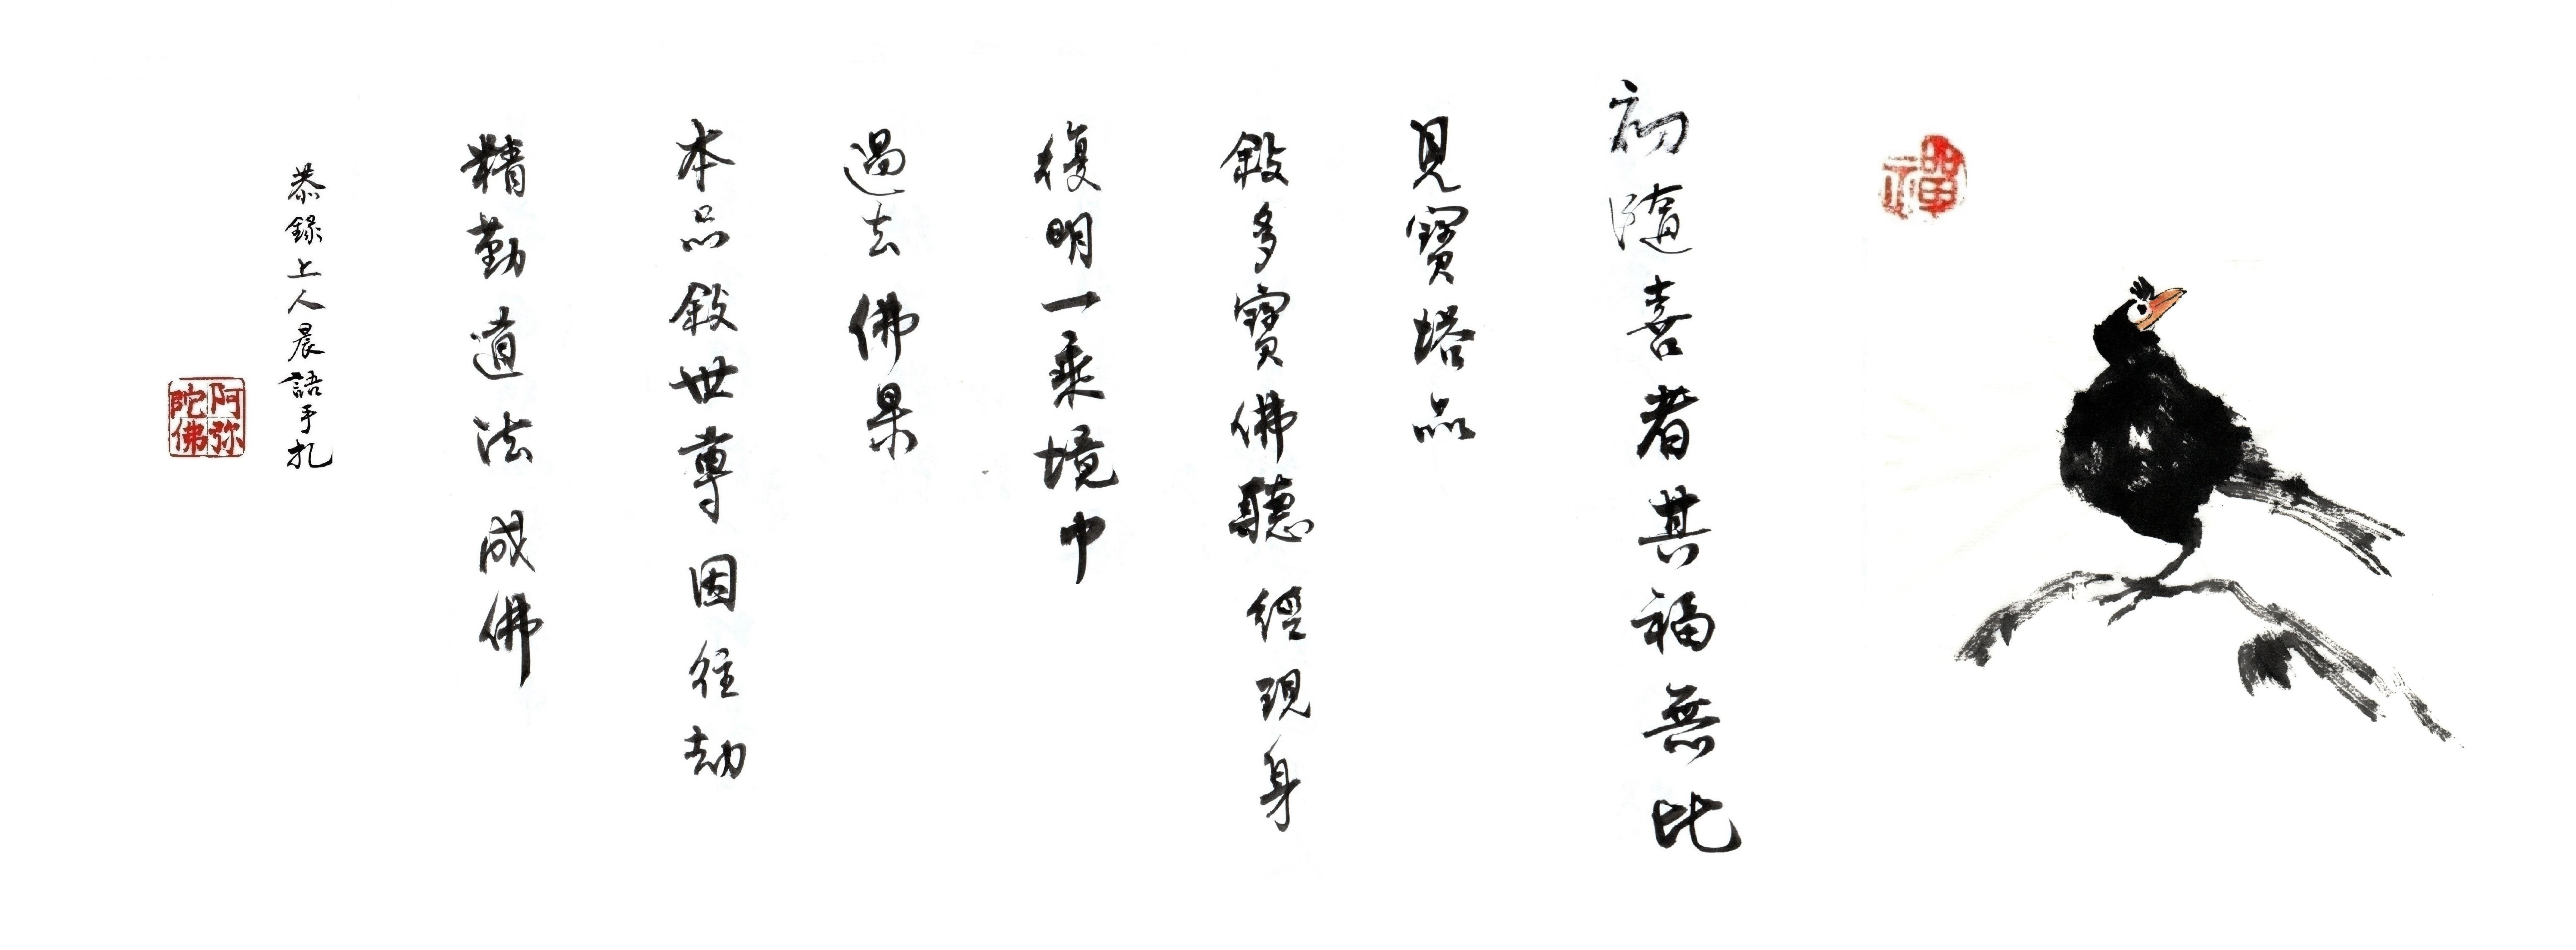 禪
初隨喜者其福無比
見寶塔品
敍多寶佛聽經現身
復明一乘境中
過去佛果
本品敍世尊因往劫
精勤道法成佛
恭錄上人晨語手扎
阿弥陀佛